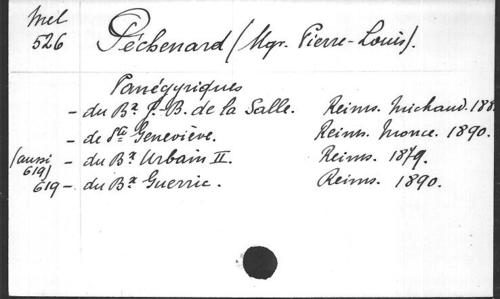 Mel
526
Péchenard (Mgr. Pierre-Louis).
Panégyriques
- du Bx J.-B. de la Salle. Reims. Michaud. 188
- de Ste Geneviève. Reims. Monce. 1890.
(aussi 619) - du Bx Urbain II. Reims. 1879.
619 - du Bx Guerric. Reims. 1890.